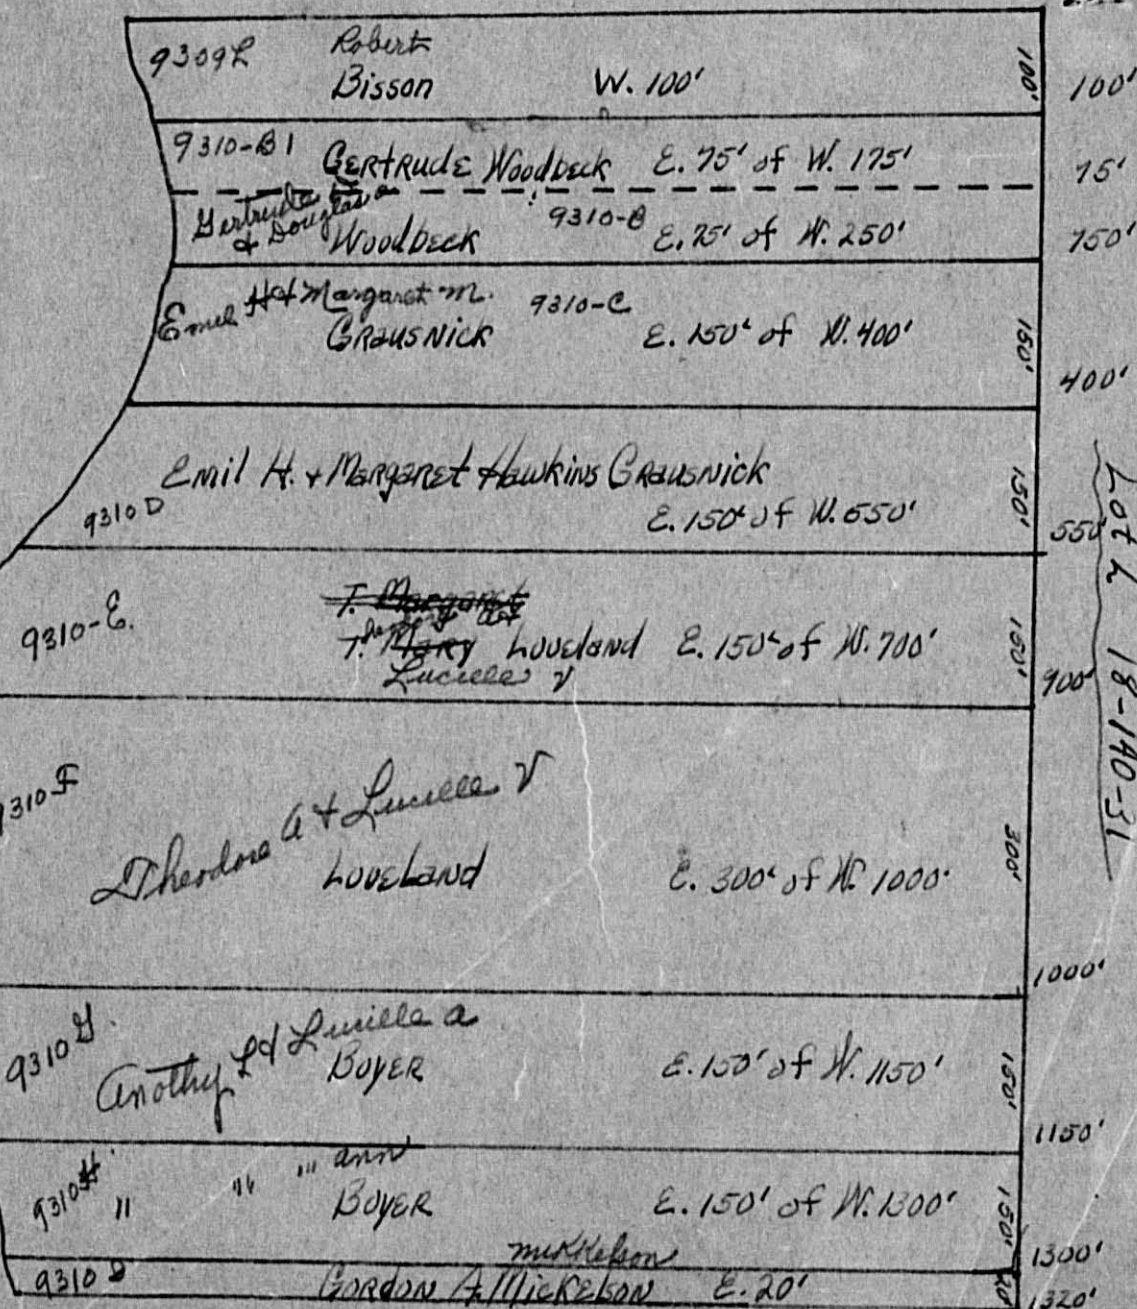 9309L Robert
Bisson W. 100' 100' 100'
9310-B1 Gertrude Woodbeck E. 75' of W. 175' 75'
Gertrude
& Douglas a
Woodbeck 9310-B E. 75' of W. 250' 750'
Emil H & Margaret M. 9310-C
Grausnick E. 150' of W. 400' 150' 400'
Emil H. + Margaret Hawkins Grausnick
9310 D E. 150' of W. 550' 150' 550'
T. Margaret
9310-E. T. Mary Loveland E. 150' of W. 700' 150' 900'
Lucille V
Lot L 18-140-31
9310 F Theodore A & Lucille V
Loveland E. 300' of W. 1000' 300'
1000'
9310 G. Anothy L & Lucille A
Boyer E. 150' of W. 1150' 150'
1150'
9310 H " " " Ann
Boyer E. 150' of W. 1300' 150'
Mikkelson 1300'
9310 Gordon A. Mickelson E. 20' 20' 1320'